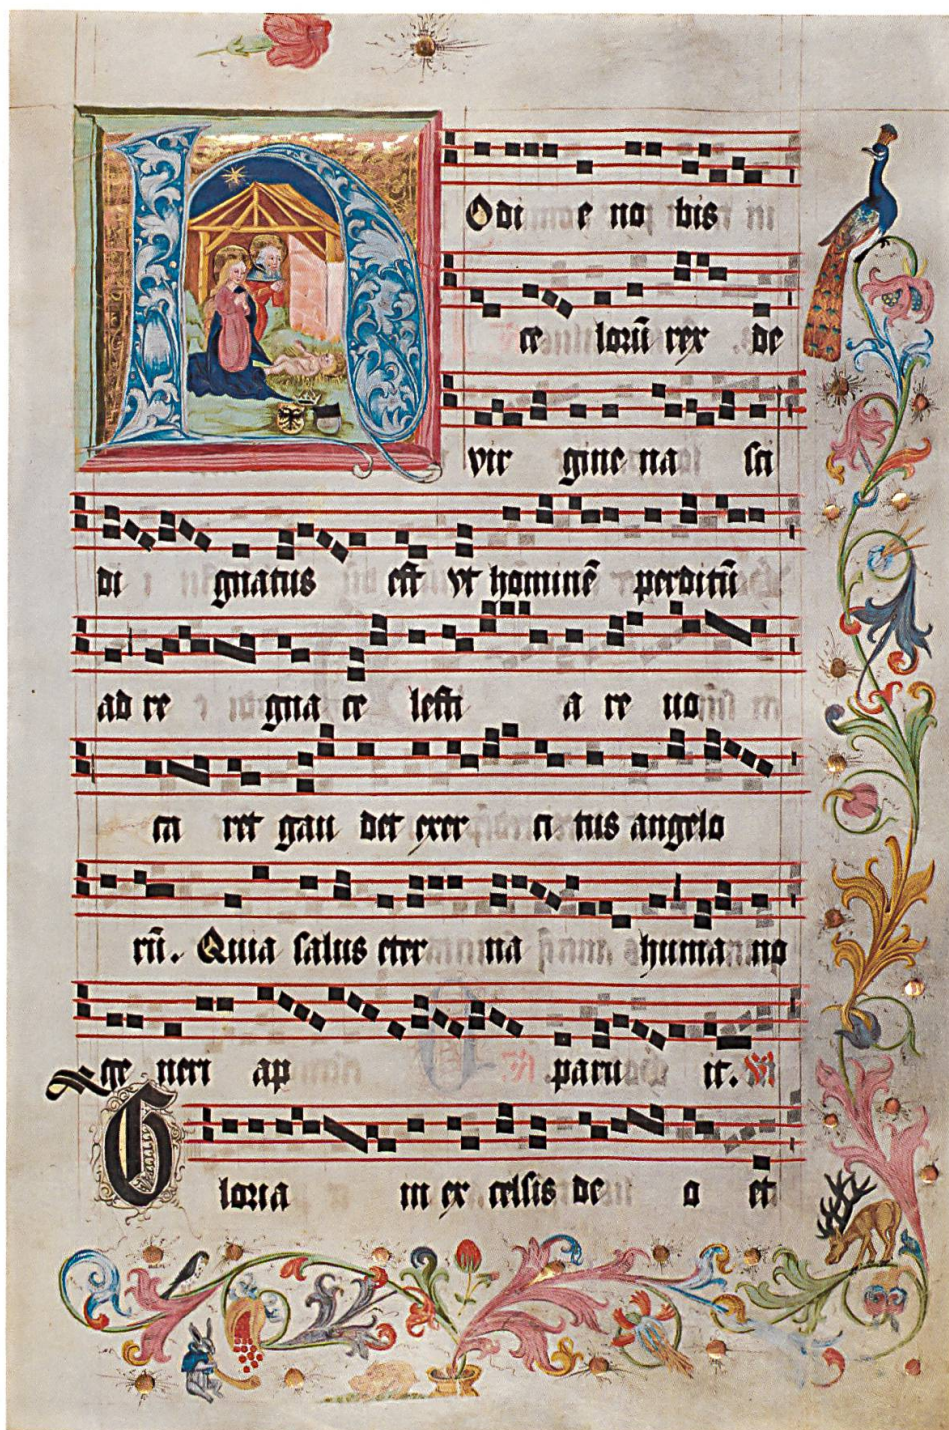 HOdi e no bis
ce lorū rex de
vir gine na sci
di gnatus est vt hōminē perditū
ad re gna ce lesti a re uo
ca ret gau det exer ci tus angelo
rū. Quia salus eter na humano
ge neri ap paru it. V
Gloria in ex celsis de o et